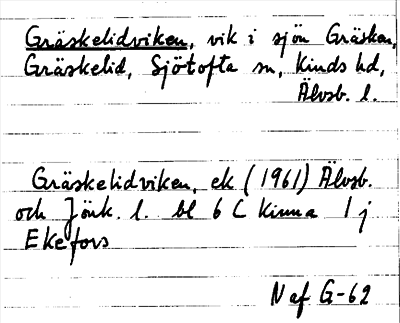 Gräskelidviken, vik i sjön Gräsken,
Gräskelid, Sjötofta sn, Kinds hd,
Älvsb. l.
Gräskelidviken, ek (1961) Älvsb.
och Jönk. l. bl 6 C Kinna 1 j
Ekefors
N af G-62